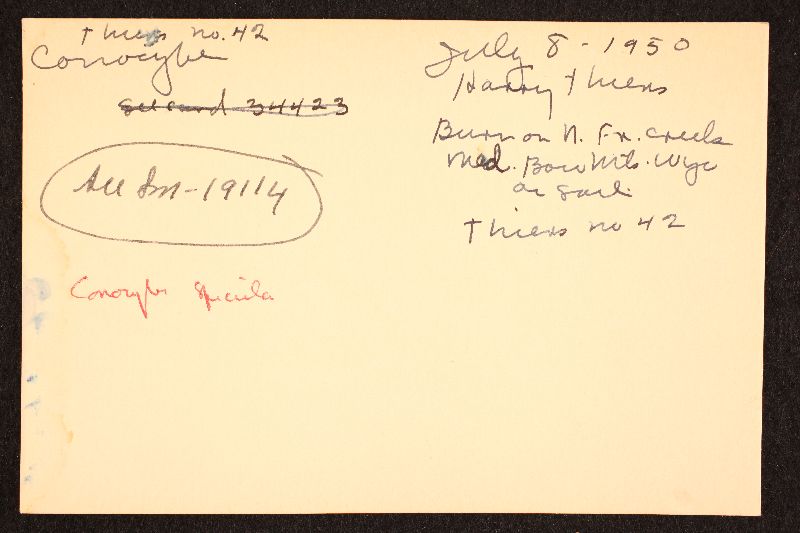 Thiers no. 42
Conocybe
See card 34423
See Sm-19114
Conocybe spicula
July 8-1950
Harry Thiers
Burn on N. Fk. Creek
Med. Bow Mts. Wyo
on soil
Thiers no 42